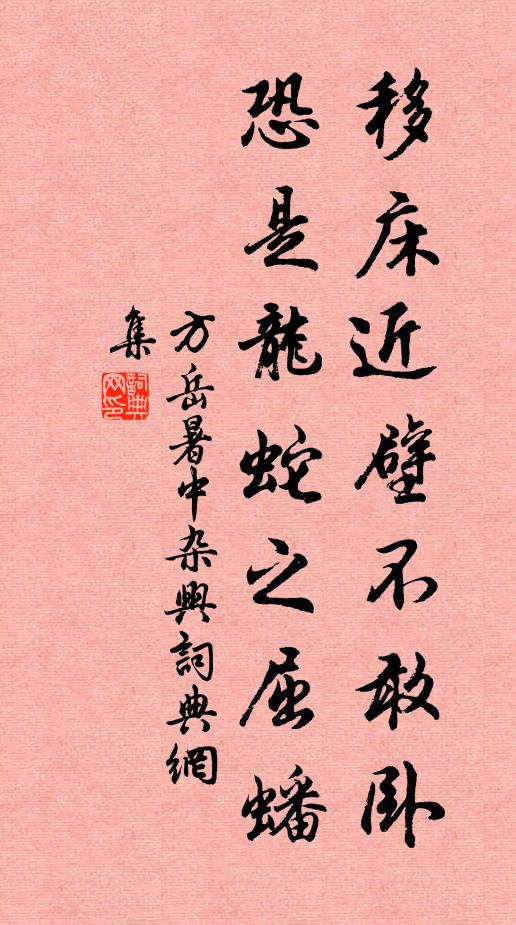 移床近壁不敢卧
恐是龍蛇之屈蟠
方岳暑中杂興詞典網
集
詞典
网印